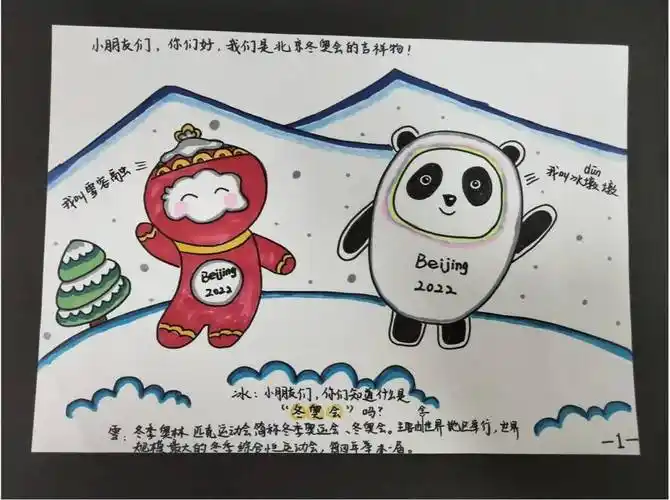 小朋友们,你们好,我们是北京冬奥会的吉祥物!
我叫雪容融
dūn
我叫冰墩墩
Beijing
2022
Beijing
2022
冰:小朋友们,你们知道什么是
“冬奥会”吗?
雪:冬季奥林匹克运动会,简称冬季奥运会、冬奥会。主要由世界地区举行,世界
规模最大的冬季综合性运动会,每四年举办一届。
-1-